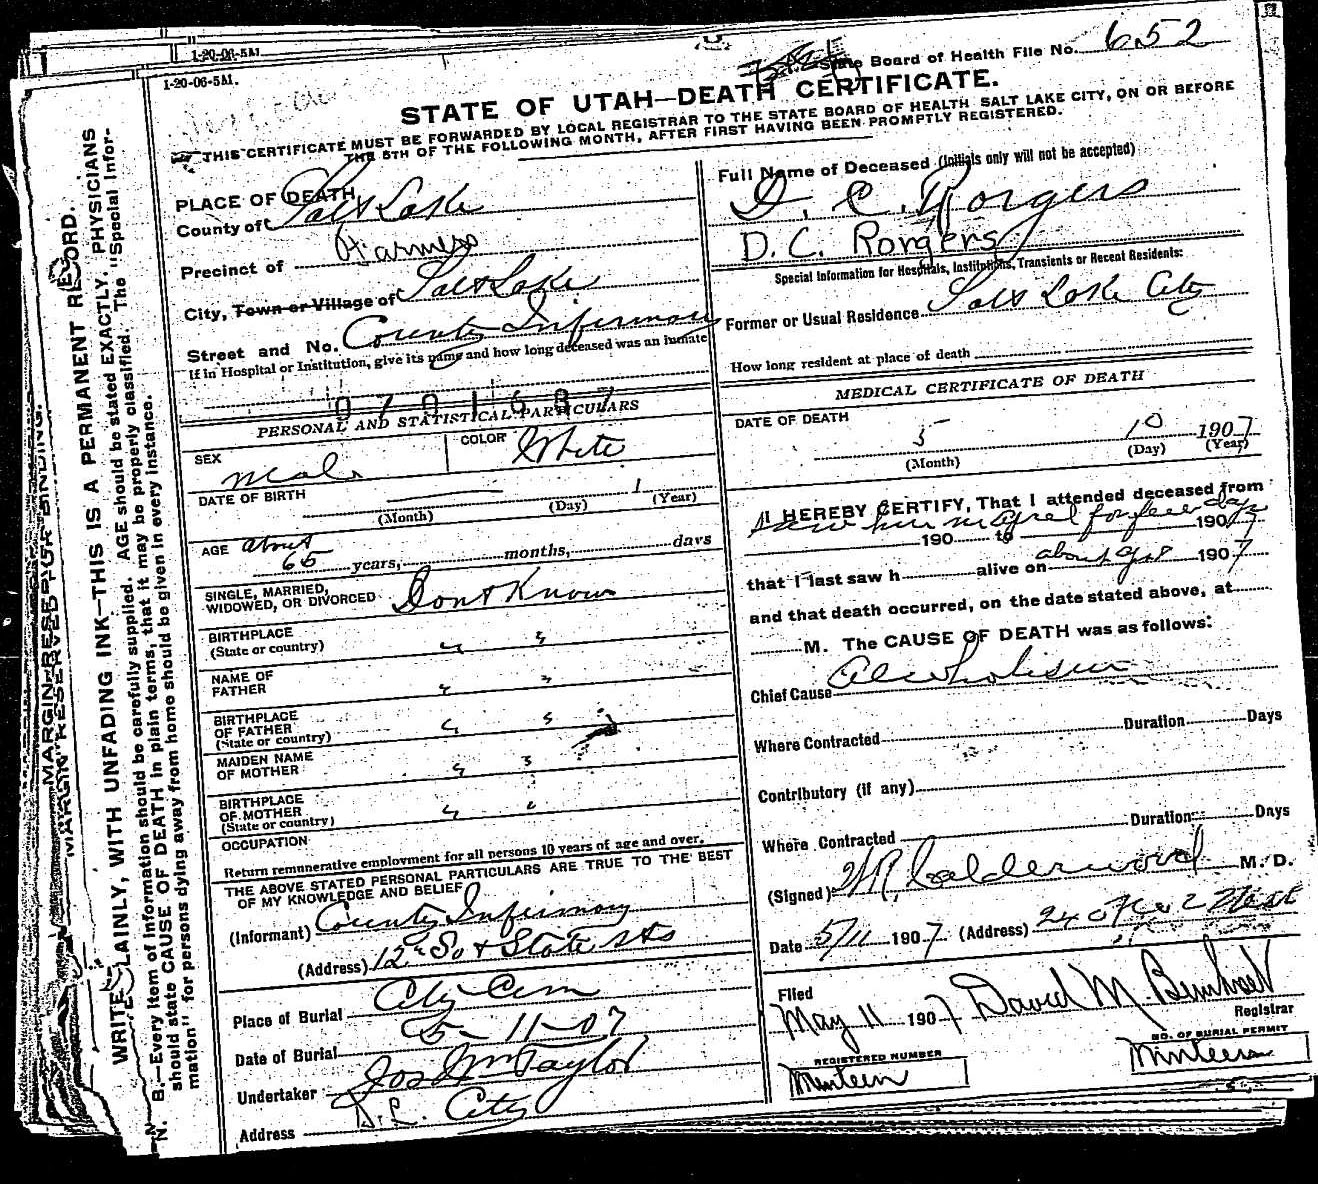 1-20-06-5M.
1-20-06-5M.
State Board of Health File No. 652
STATE OF UTAH—DEATH CERTIFICATE.
THIS CERTIFICATE MUST BE FORWARDED BY LOCAL REGISTRAR TO THE STATE BOARD OF HEALTH SALT LAKE CITY, ON OR BEFORE
THE 5TH OF THE FOLLOWING MONTH, AFTER FIRST HAVING BEEN PROMPTLY REGISTERED.
MARGIN RESERVED FOR BINDING.
WRITE PLAINLY, WITH UNFADING INK—THIS IS A PERMANENT RECORD.
N. B.—Every item of information should be carefully supplied. AGE should be stated EXACTLY. PHYSICIANS
should state CAUSE OF DEATH in plain terms, that it may be properly classified. The "Special Infor-
mation" for persons dying away from home should be given in every instance.
PLACE OF DEATH
County of Salt Lake
Precinct of Farmers
City, Town or Village of Salt Lake
Street and No. County Infirmary
If in Hospital or Institution, give its name and how long deceased was an inmate
0701687
PERSONAL AND STATISTICAL PARTICULARS
SEX Male
COLOR White
DATE OF BIRTH 1
(Month) (Day) (Year)
AGE about
65 years, months, days
SINGLE, MARRIED,
WIDOWED, OR DIVORCED Dont Know
BIRTHPLACE
(State or country) " "
NAME OF
FATHER " "
BIRTHPLACE
OF FATHER " "
(State or country)
MAIDEN NAME
OF MOTHER " "
BIRTHPLACE
OF MOTHER " "
(State or country)
OCCUPATION
Return remunerative employment for all persons 10 years of age and over.
THE ABOVE STATED PERSONAL PARTICULARS ARE TRUE TO THE BEST
OF MY KNOWLEDGE AND BELIEF
(Informant) County Infirmary
(Address) 12th So & State Sts
Place of Burial City Cem
Date of Burial 5-11-07
Undertaker Jos Wm Taylor
Address S.L. City
Full Name of Deceased (Initials only will not be accepted)
D. C. Rorgers
D.C. Rorgers
Special Information for Hospitals, Institutions, Transients or Recent Residents:
Former or Usual Residence Salt Lake City
How long resident at place of death
MEDICAL CERTIFICATE OF DEATH
DATE OF DEATH
5 10 1907
(Month) (Day) (Year)
I HEREBY CERTIFY, That I attended deceased from
saw him in April for few days 1907
190 to
that I last saw h alive on about Apr 1907
and that death occurred, on the date stated above, at
M. The CAUSE OF DEATH was as follows:
Chief Cause Alcoholism
Duration Days
Where Contracted
Contributory (if any)
Duration Days
Where Contracted
(Signed) Calderwood M. D.
Date 5/11 1907 (Address)
Filed
May 11 1907 David M.
Registrar
REGISTERED NUMBER
NO. OF BURIAL PERMIT